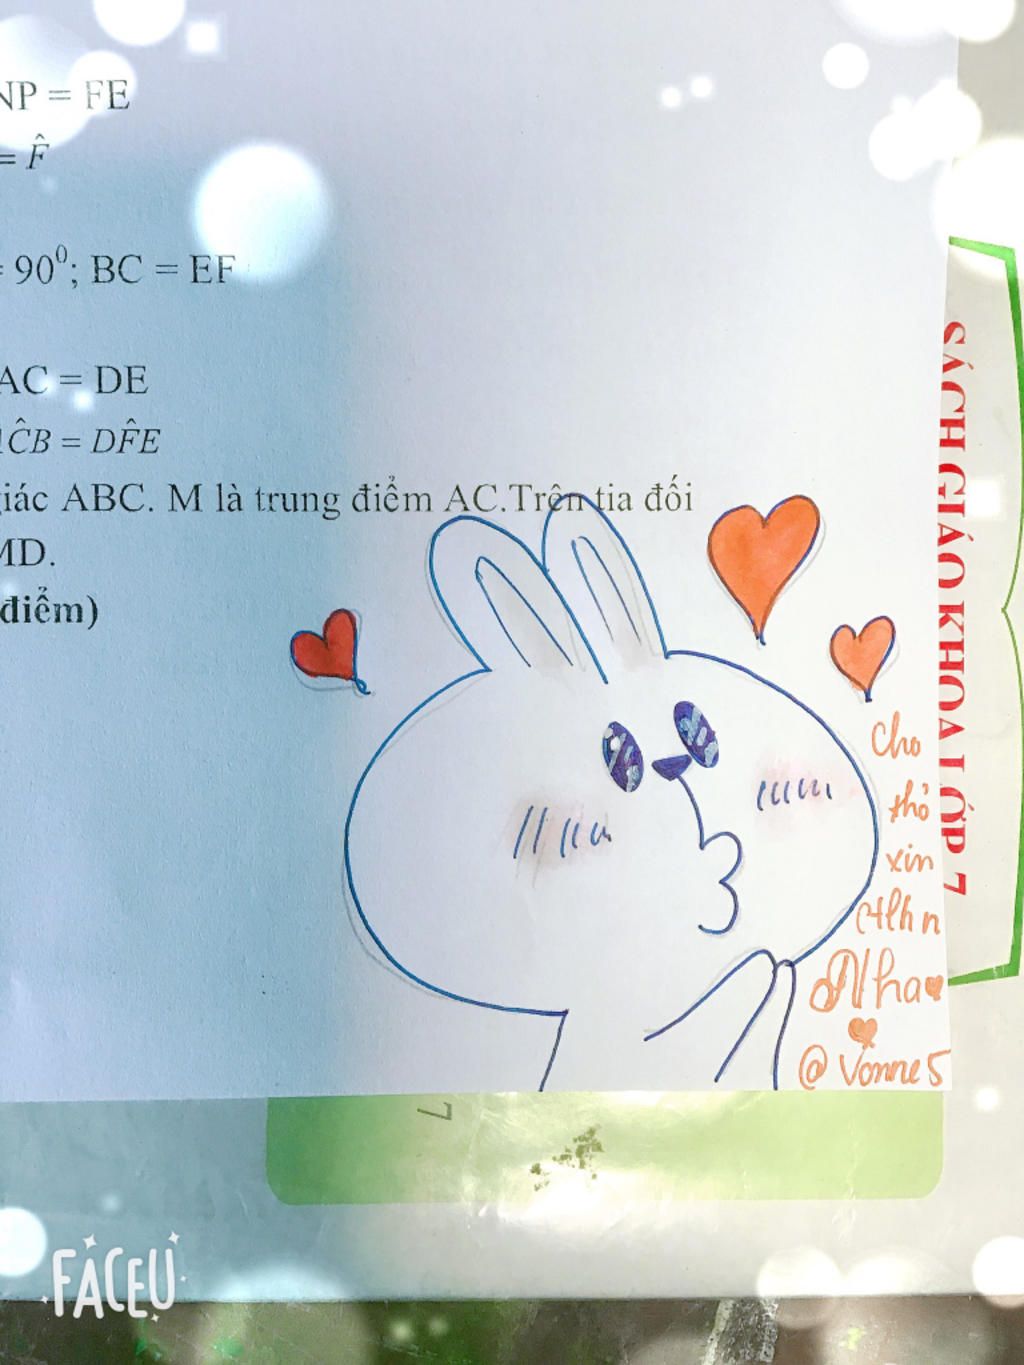 NP = FE
= F̂
= 90⁰; BC = EF
AC = DE
ĈB = DF̂E
giác ABC. M là trung điểm AC.Trên tia đối
MD.
điểm)
SÁCH GIÁO KHOA LỚP 7
Cho
thỏ
xin
ctlhn
Nha
@Vonne5
FACEU